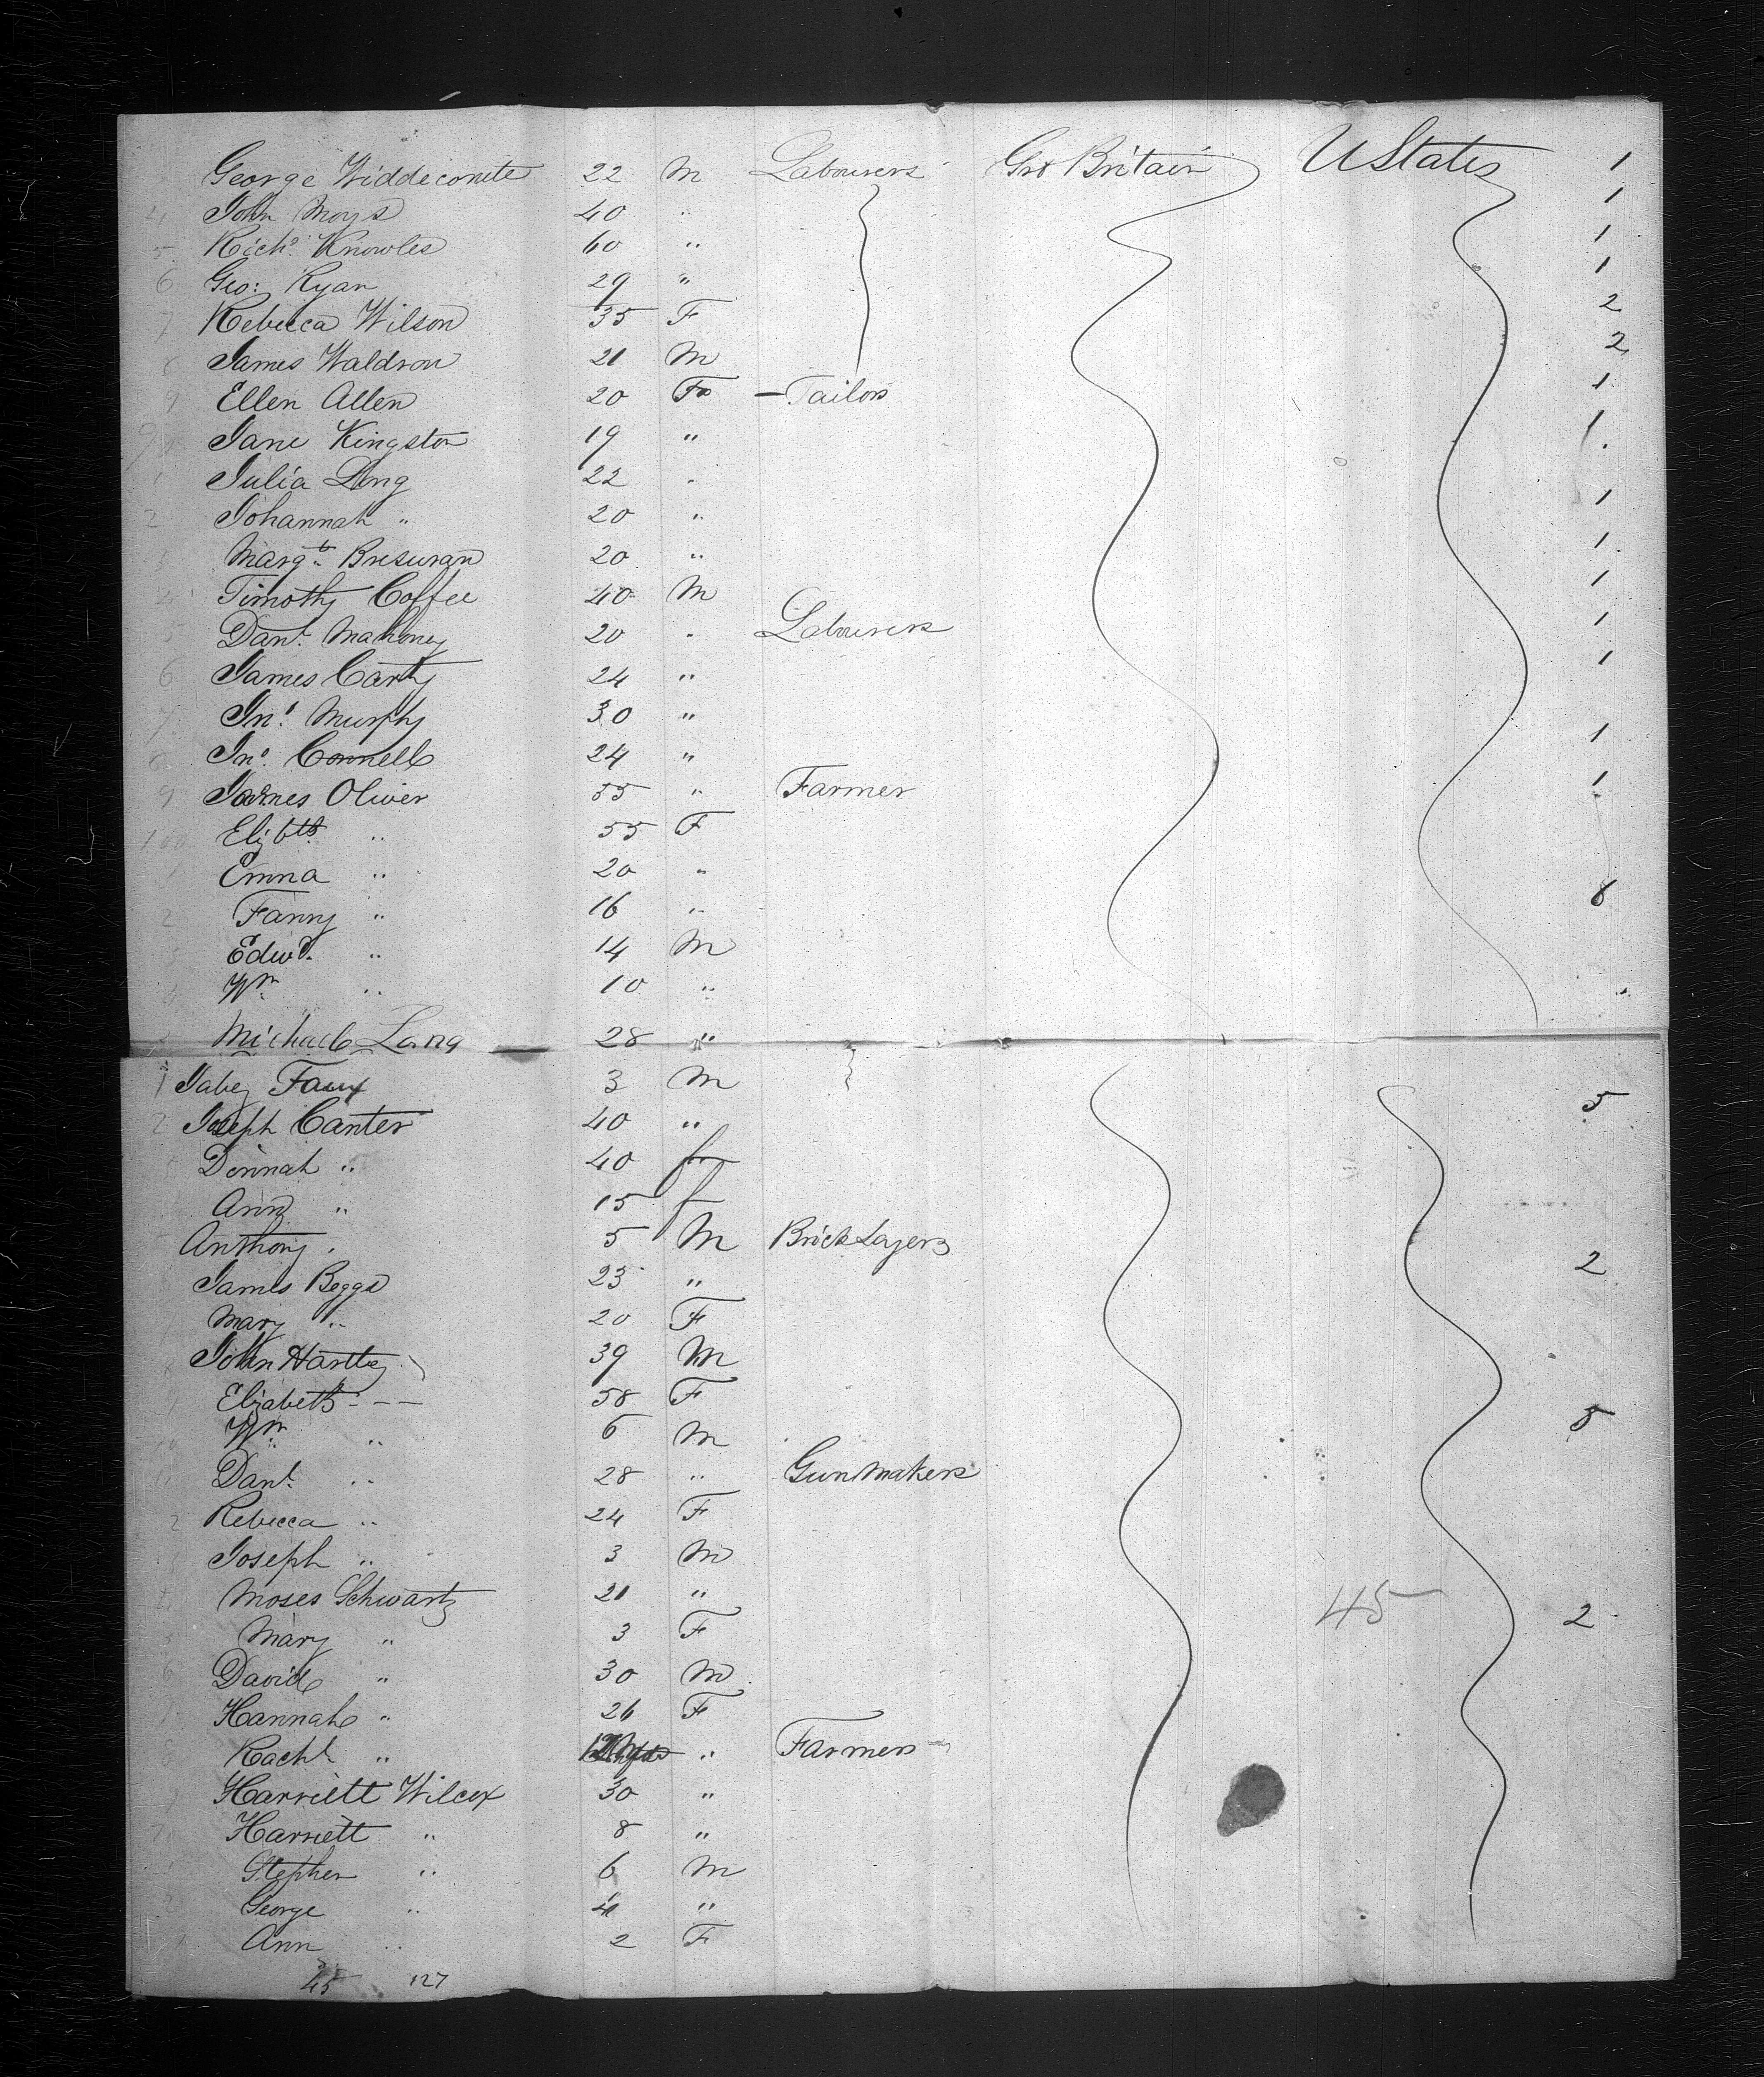 George Widdecombe 22 M Labourers Gr Britain U States 1
4 John Moys 40 " 1
5 Rich.d Knowles 60 " 1
6 Geo: Ryan 29 " 1
7 Rebecca Wilson 35 F 2
James Waldron 21 M 2
9 Ellen Allen 20 F - Tailors 1
Jane Kingston 19 " 1
1 Julia Long 22 "
2 Johannah " 20 " 1
3 Marg.t 20 " 1
4 Timothy Coffee 40 M 1
5 Danl. Mahoney 20 " Labourers 1
6 James Carty 24 " 1
7 Jno. Murphy 30 "
Jno. Connell 24 " 1
9 James Oliver 55 " Farmer 1
100 Elizbth " 55 F
1 Emma " 20 "
2 Fanny " 16 " 6
3 Edwd. " 14 M
4 Wm. " 10 "
Michael Lang 28 "
1 Jabez 3 M 5
2 Joseph Canter 40 "
Dinnah " 40 f
Ann " 15 f
Anthony " 5 M Brick Layers
James Beggs 23 " 2
Mary " 20 F
John Hartley 39 M
Elizabeth - - - 58 F
10 Wm. " 6 M 5
Danl. " 28 " Gun Makers
2 Rebecca " 24 F
Joseph " 3 M
Moses Schwartz 21 " 45 2
Mary " 3 F
6 David " 30 M
Hannah " 26 F
Rachl. " " Farmers
Harriett Wilcox 30 "
20 Harriett " 8 "
1 Stephen " 6 M
2 George " 4 "
Ann " 2 F
45 127